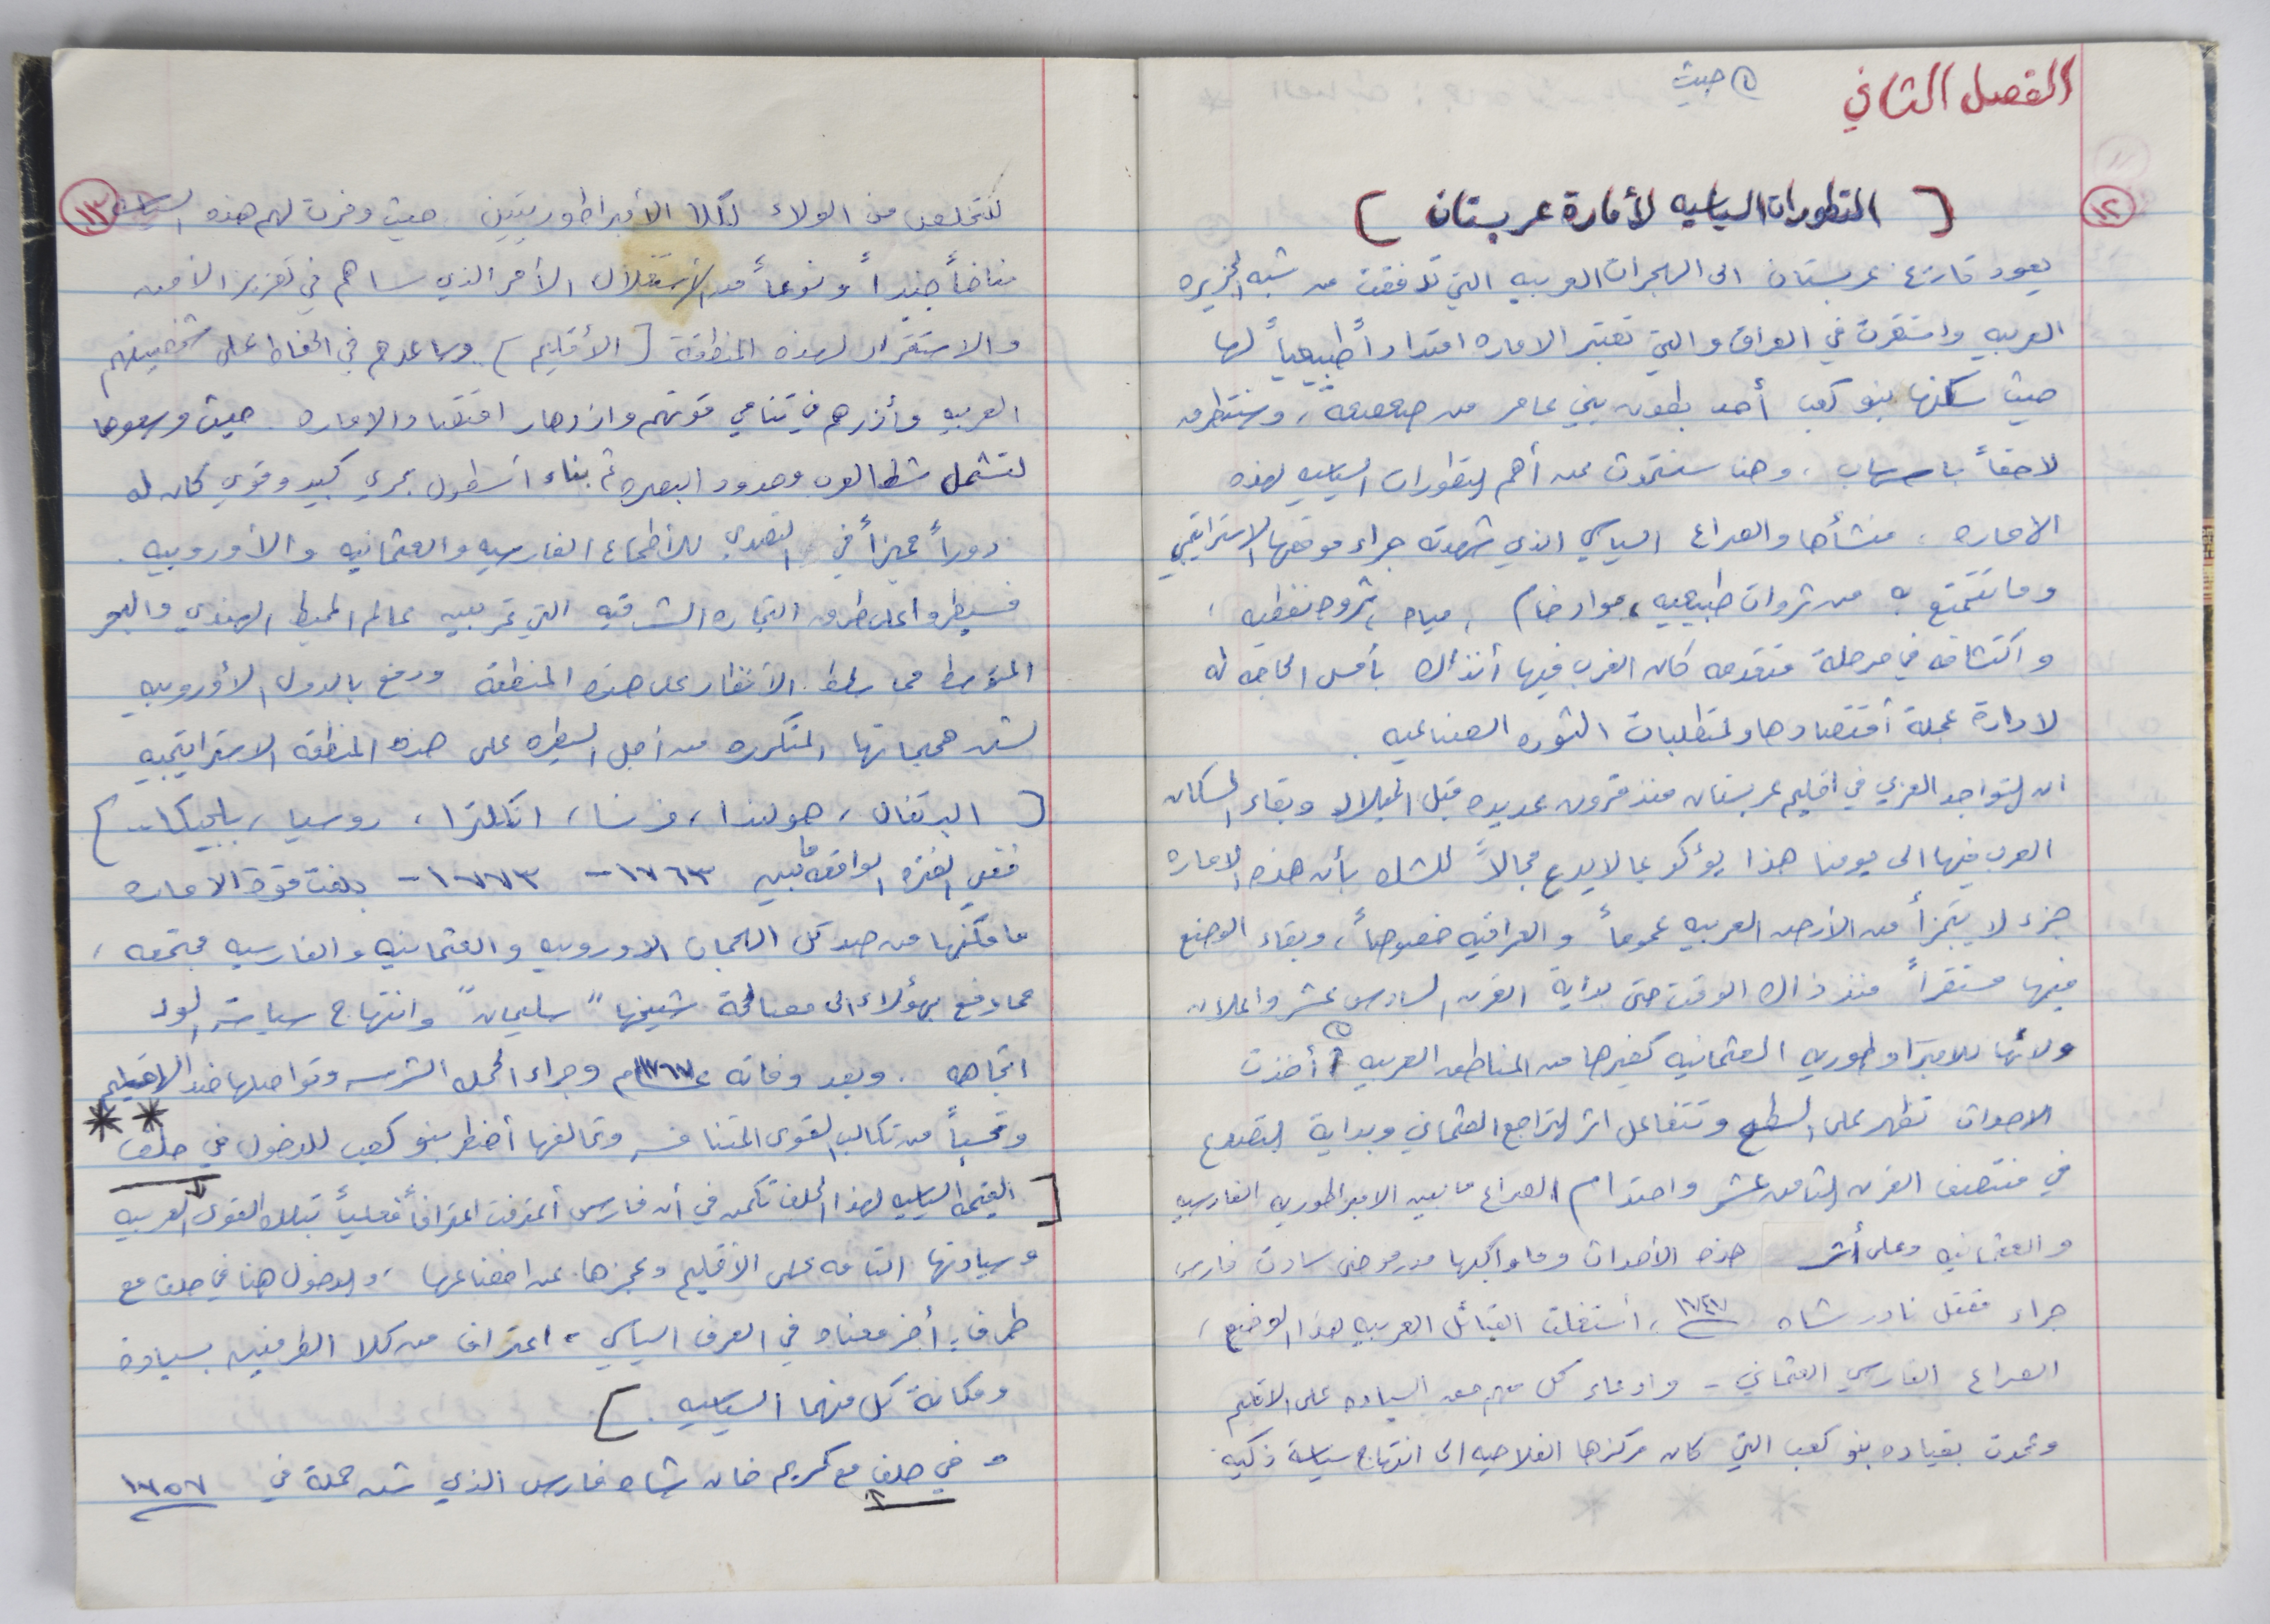 الفصل الثاني
(١) حيث
(١٢)
[ التطورات السياسيه لأمارة عربستان ]
يعود تاريخ عربستان الى الهجرات العربيه التي تدفقت من شبه الجزيره
العربيه واستقرت في العراق والتي تعتبر الاماره امتداداً طبيعياً لها
حيث سكنها بنو كعب أحد بطون بني عامر من صعصعة، وسنتطرق
لاحقاً باسهاب، وهنا سنتحدث عن أهم التطورات السياسيه لهذه
الاماره، منشأها والصراع السياسي الذي شهدته جراء موقعها الاستراتيجي
وما تتمتع به من ثروات طبيعيه، مواد خام، مياه، ثروه نفطيه،
واكتشافه في مرحلة متقدمه كان الغرب فيها أنذاك بأمس الحاجه له
لادارة عجلة أقتصادها ولمتطلبات الثوره الصناعيه.
ان التواجد العربي في اقليم عربستان منذ قرون عديده قبل الميلاد وبقاء السكان
العرب فيها الى يومنا هذا يؤكد بما لايدع مجالاً للشك بأن هذه الاماره
جزء لا يتجزأ من الأرض العربيه عموماً والعراقيه خصوصاً، وبقاء الوضع
فيها مستقراً منذ ذاك الوقت حتى بداية القرن السادس عشر واعلان
ولائها للامبراطوريه العثمانيه كغيرها من المناطق العربيه (١) أخذت
الاحداث تظهر على السطح وتتفاعل اثر التراجع العثماني وبداية التصدع
في منتصف القرن الثامن عشر واحتدام الصراع مابين الامبراطوريه الفارسيه
والعثمانيه وعلى أثر هذه الأحداث وما واكبها من فوضى سادت فارس
جراء مقتل نادر شاه ١٧٤٧، أستغلت القبائل العربيه هذا الوضع،
الصراع الفارسي العثماني - وادعاء كل منهم حق السياده على الاقليم
وعمدت بقياده بنو كعب التي كان مركزها الفلاحيه الى انتهاج سياسة ذكية
(١٣)
للتخلص من الولاء لكلا الأمبراطوريتين حيث وفرت لهم هذه السياسه
مناخاً جيداً ونوعاً من الأستقلال الأمر الذي ساهم في تعزيز الأمن
والاستقرار لهذه المنطقة [الأقليم] وساعدهم في الحفاظ على شخصيتهم
العربيه وأزرهم في تنامي قوتهم وازدهار اقتصاد الاماره. حيث وسعوها
لتشمل شط العرب وحدود البصره ثم بناء اسطول بحري كبير وقوي كان له
دوراً مميزاً في التصدي للأطماع الفارسيه والعثمانيه والأوروبيه.
فسيطروا على طرق التجاره الشرقيه التي تمر بين عالم المحيط الهندي والبحر
المتوسط مما سلط الأنظار على هذه المنطقة ودفع بالدول الأوروبيه
لشن هجماتها المتكرره من أجل السيطره على هذه المنطقه الاستراتيجيه
[البرتغال، هولندا، فرنسا، انكلترا، روسيا، بلجيكا..]
ففي الفتره الواقعه ما بين ١٧٦٣ - ١٧٧٣ - بلغت قوة الاماره
مامكنها من صد كل الهجمات الاوروبيه والعثمانيه والفارسيه مجتمعه،
مما دفع بهؤلاء الى مصالحة شيخها "سليمان" وانتهاج سياسة الود
اتجاهه. وبعد وفاته عام ١٧٦٧م وجراء الحمله الشرسه وتواصلها ضد الاقليم
وتحسباً من تكالب القوى المتنافسه وتحالفها أضطر بنو كعب للدخول في حلف **
[القيمه السياسيه لهذا الحلف تكمن في أن فارس أعترفت اعترافاً فعلياً بتلك القوى العربيه
وسيادتها التامه على الاقليم وعجزها عن اخضاعها، والدخول هنا في حلف مع
طرف أخر معناه في العرف السياسي، اعتراف من كلا الطرفين بسيادة
ومكانة كل منهما السياسيه.]
و في حلف مع كريم خان شاه فارس الذي شن حملة في ١٧٥٧